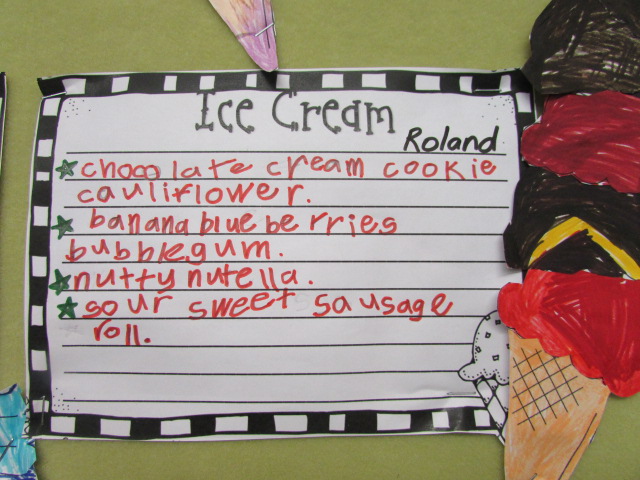 Ice Cream
Roland
chocolate cream cookie
cauliflower.
banana blueberries
bubblegum.
nutty nutella.
sour sweet sausage
roll.